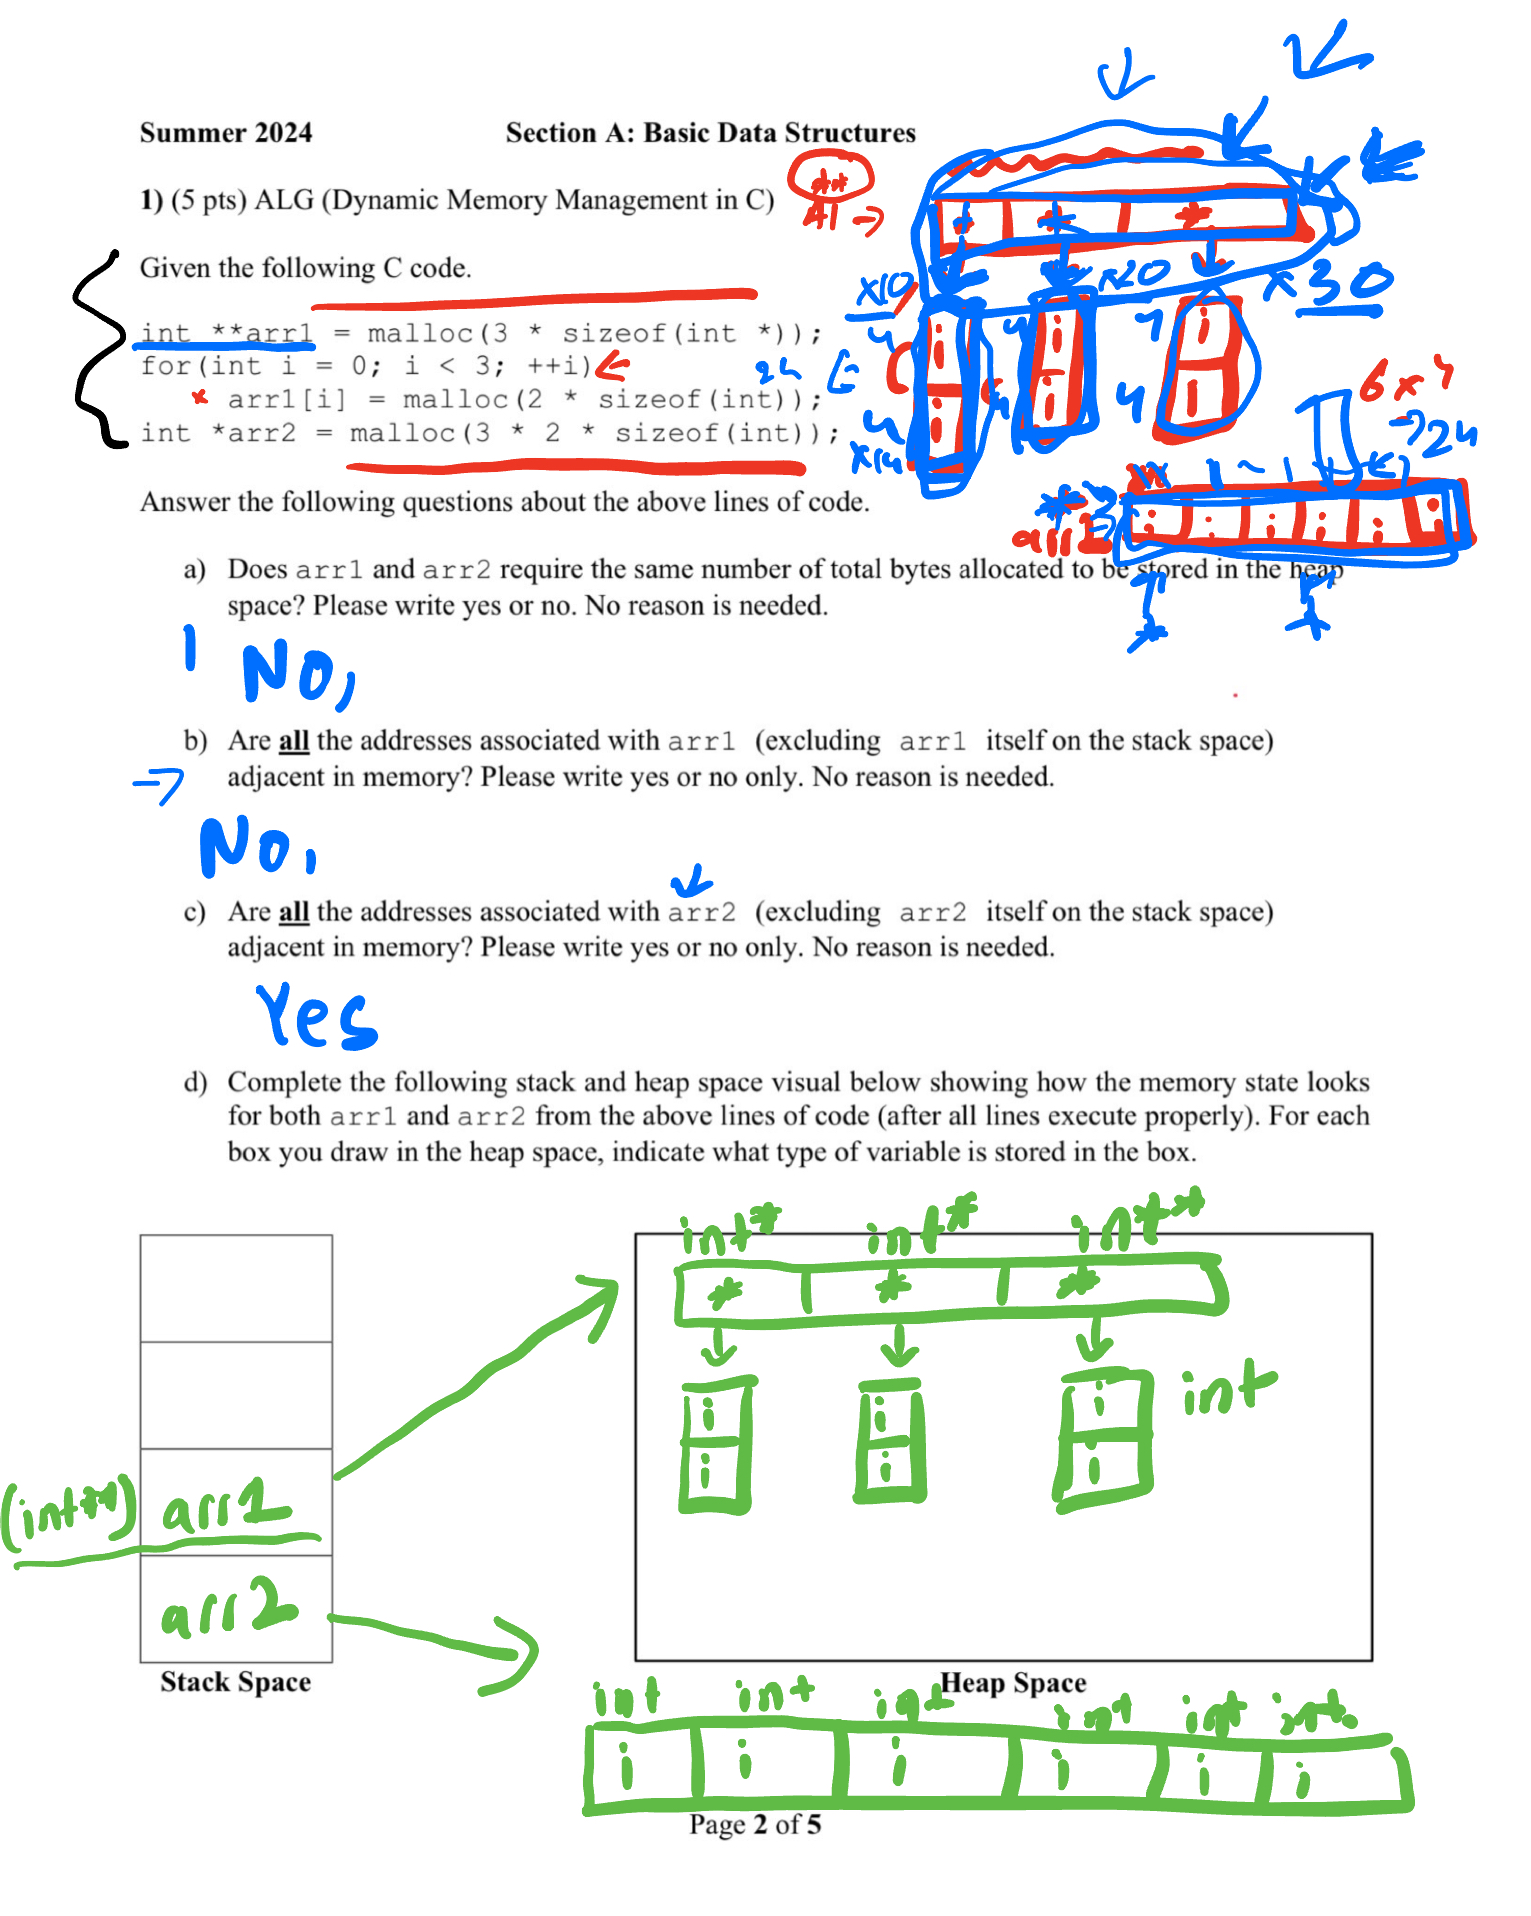 Summer 2024 Section A: Basic Data Structures
1) (5 pts) ALG (Dynamic Memory Management in C)
Given the following C code.
x10 x20 x30
int **arr1 = malloc(3 * sizeof(int *));
for(int i = 0; i < 3; ++i)
arr1[i] = malloc(2 * sizeof(int));
int *arr2 = malloc(3 * 2 * sizeof(int));
24
i i i
i i i
4 4 4 4
x14
6x4
→24
Answer the following questions about the above lines of code.
i i i i i i
a) Does arr1 and arr2 require the same number of total bytes allocated to be stored in the heap
space? Please write yes or no. No reason is needed.
No,
b) Are all the addresses associated with arr1 (excluding arr1 itself on the stack space)
adjacent in memory? Please write yes or no only. No reason is needed.
No,
c) Are all the addresses associated with arr2 (excluding arr2 itself on the stack space)
adjacent in memory? Please write yes or no only. No reason is needed.
Yes
d) Complete the following stack and heap space visual below showing how the memory state looks
for both arr1 and arr2 from the above lines of code (after all lines execute properly). For each
box you draw in the heap space, indicate what type of variable is stored in the box.
int* int* int*
* * *
i i i int
i i i
(int**) arr1
arr2
Stack Space Heap Space
int int int int int int
i i i i i i
Page 2 of 5